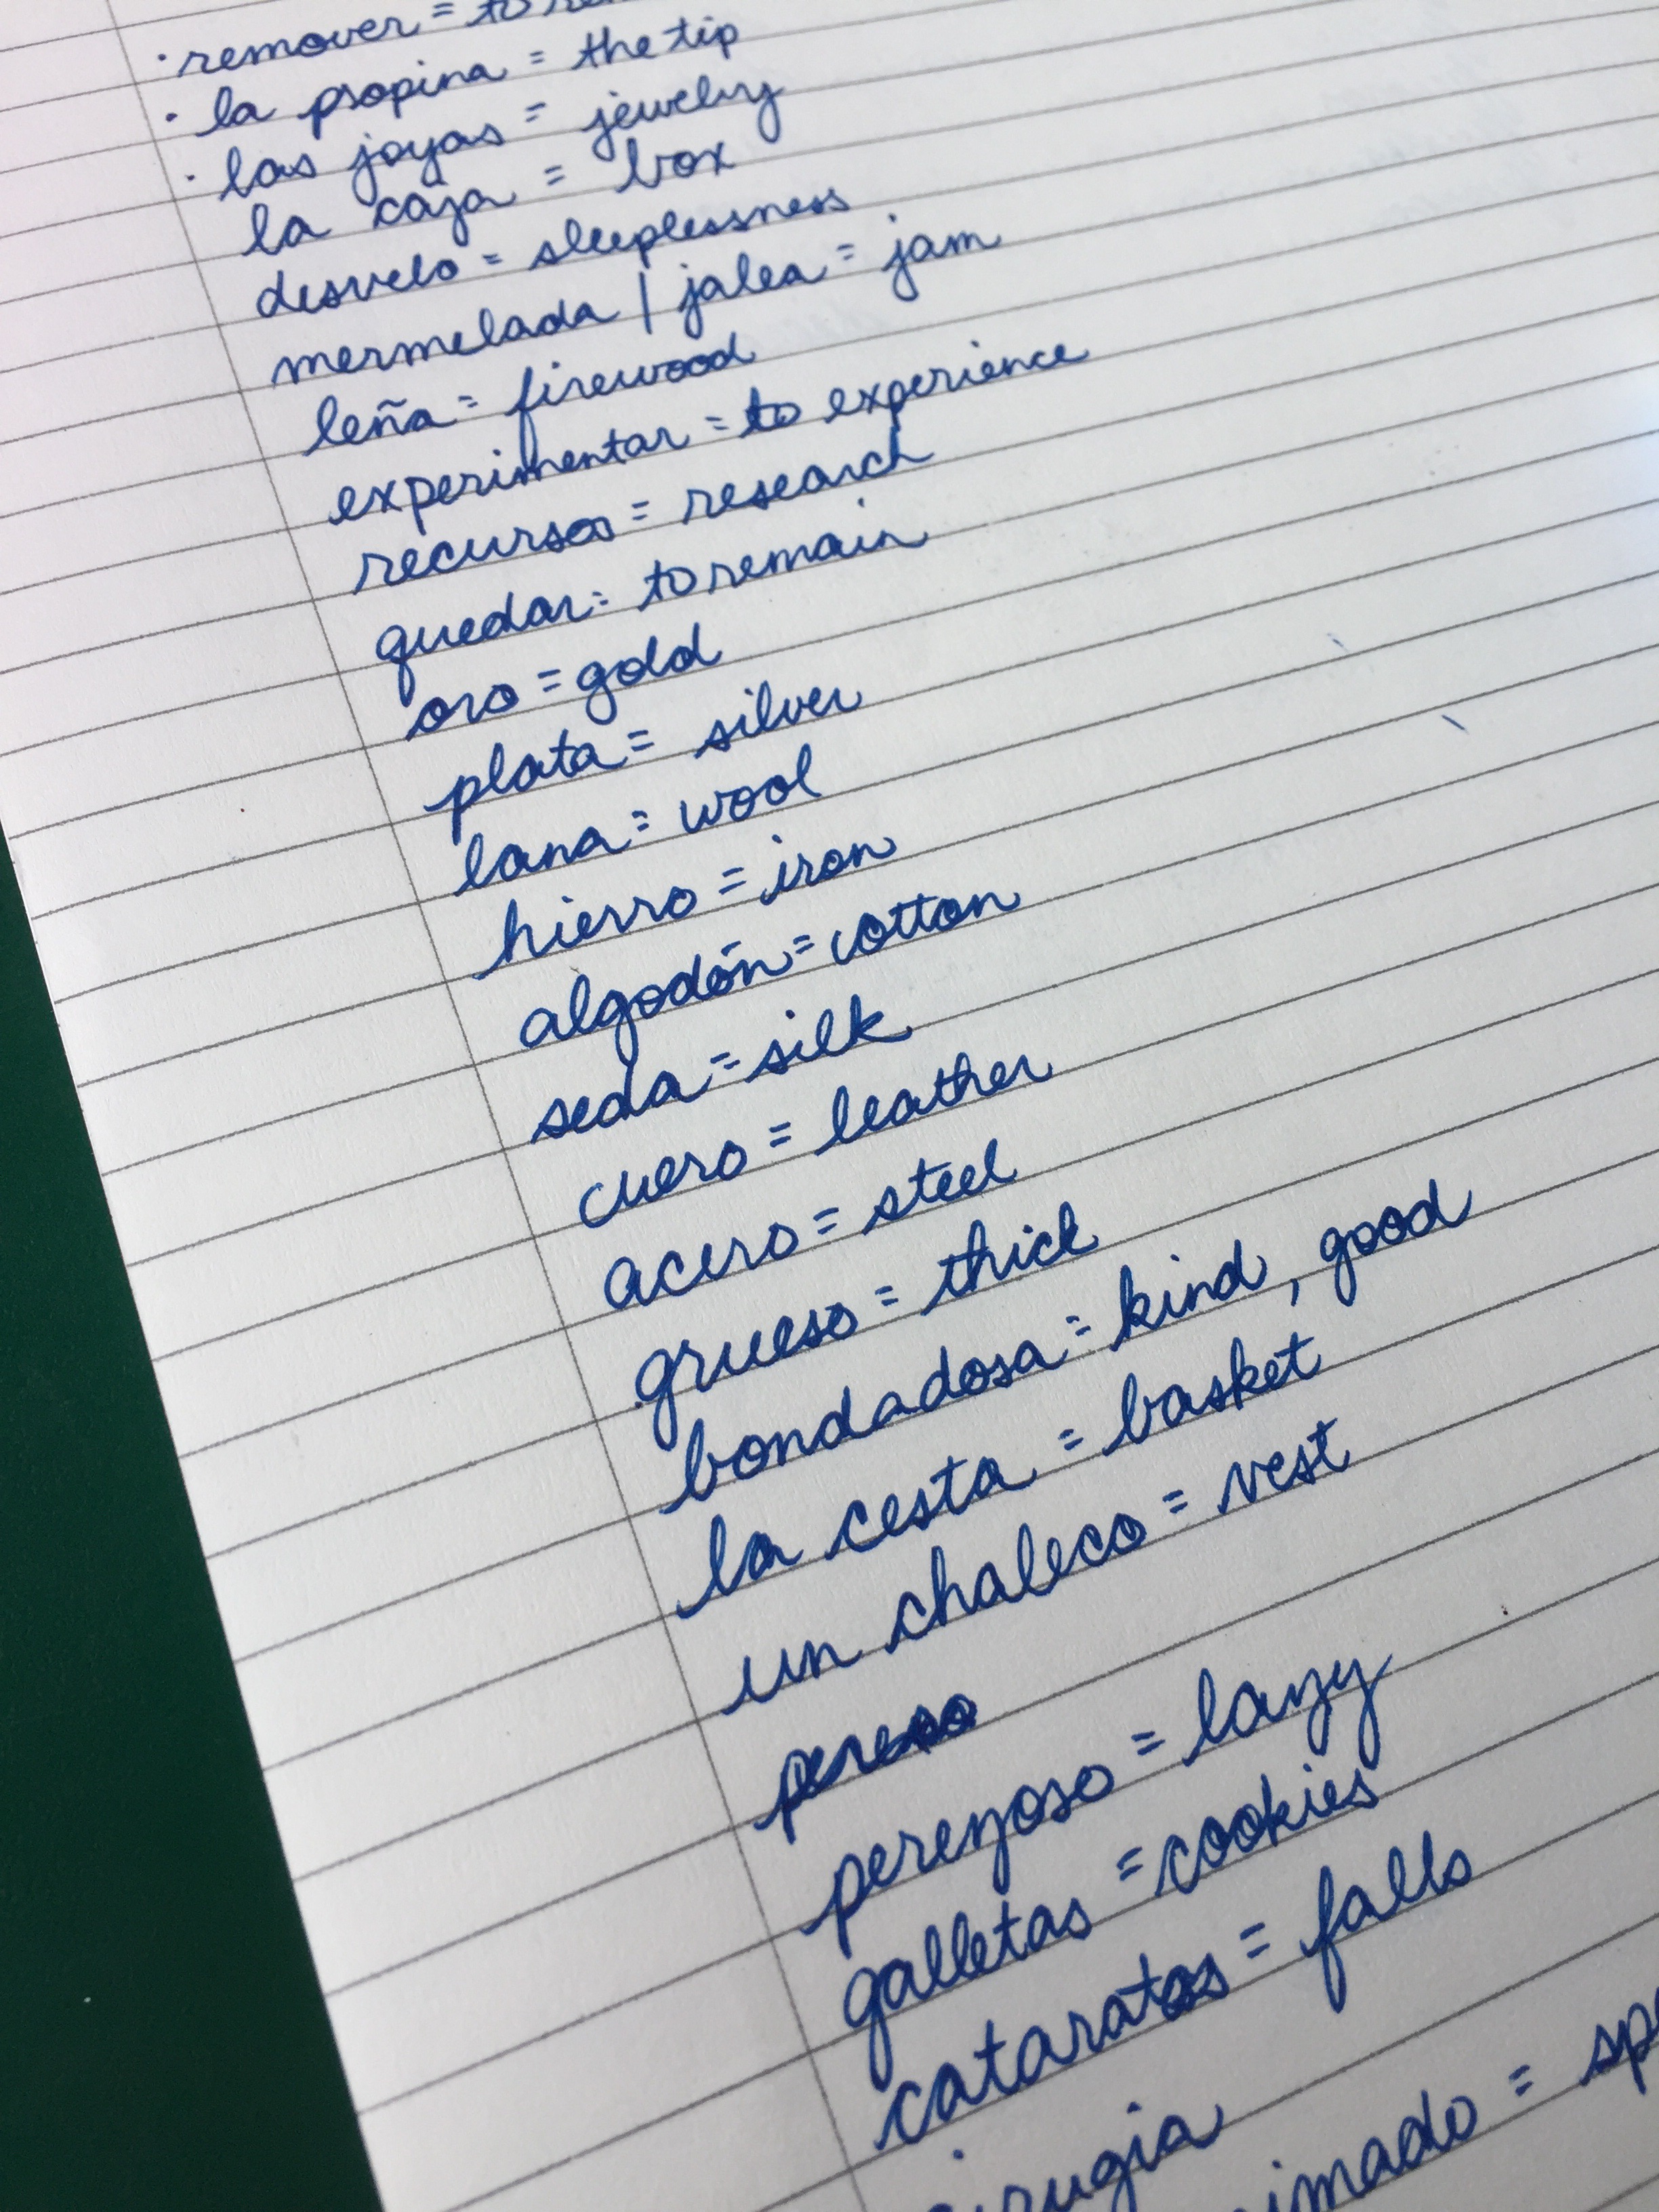 · remover = to
· la propina = the tip
· las joyas = jewelry
la caja = box
desvelo = sleeplessness
mermelada / jalea = jam
leña = firewood
experimentar = to experience
recursos = research
quedar = to remain
oro = gold
plata = silver
lana = wool
hierro = iron
algodón = cotton
seda = silk
cuero = leather
acero = steel
grueso = thick
bondadosa = kind, good
la cesta = basket
un chaleco = vest
perezoso = lazy
galletas = cookies
cataratas = falls
cirugia
=